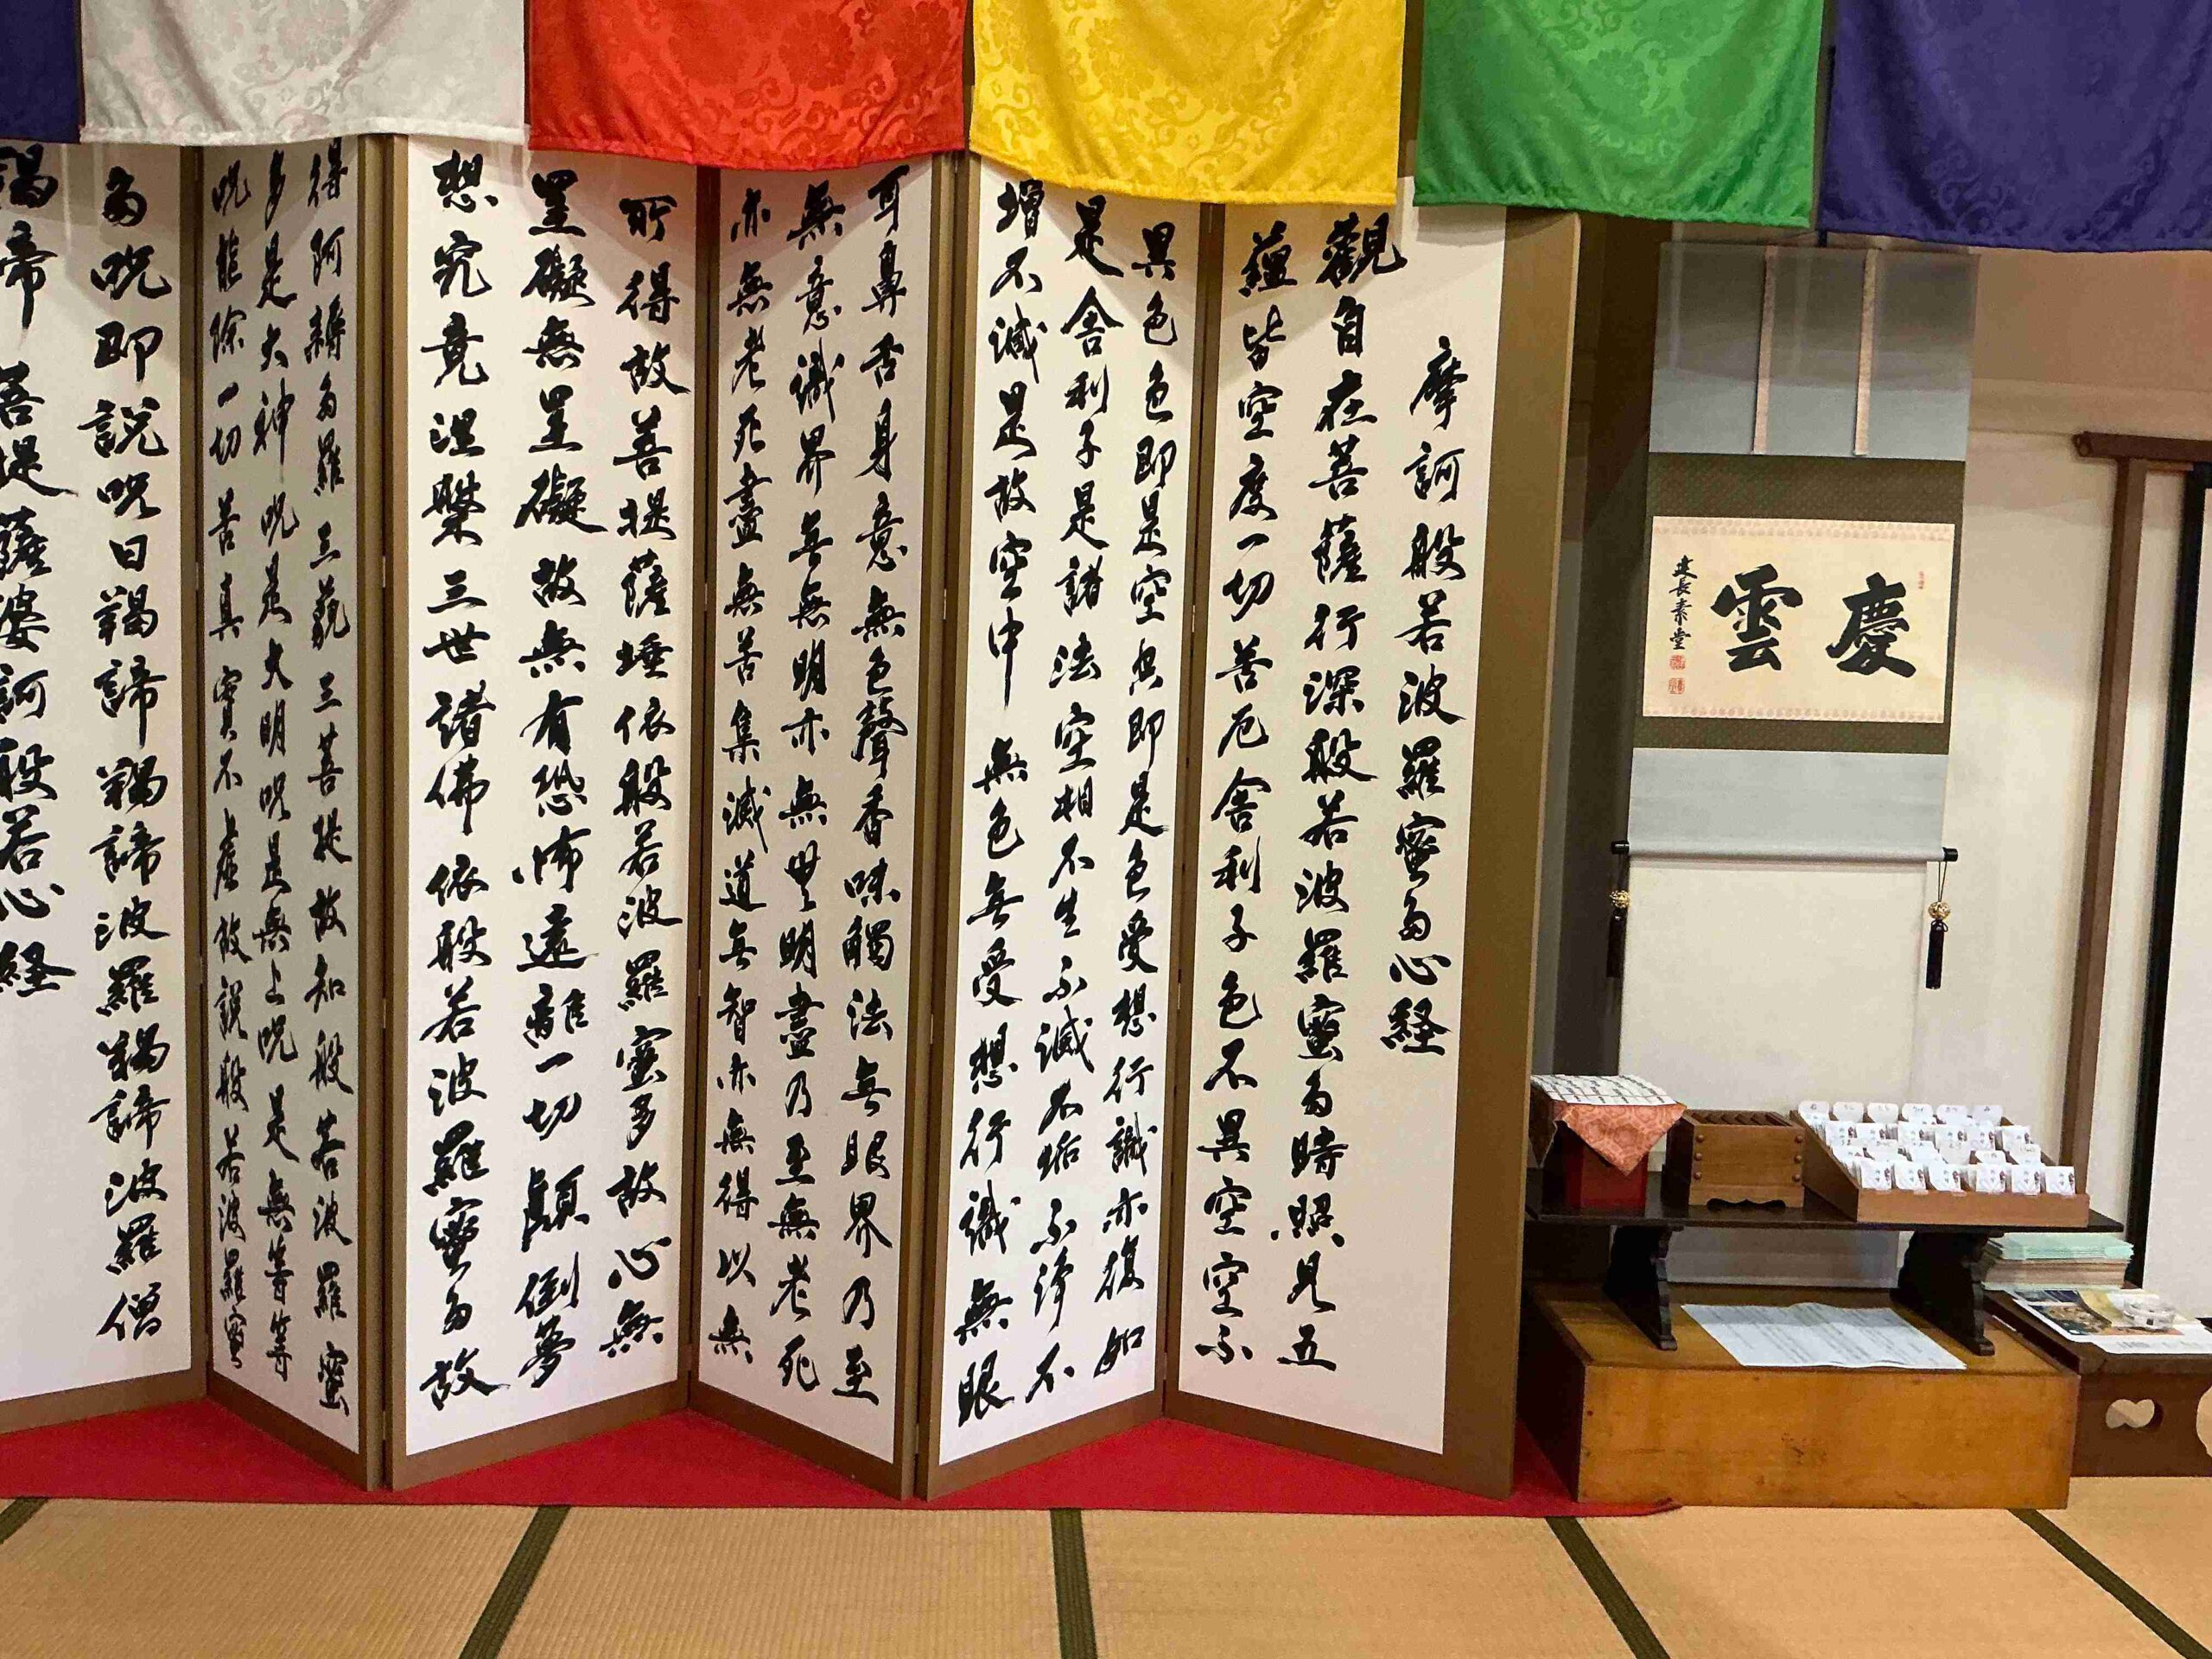 慶雲
建長素堂
摩訶般若波羅蜜多心経
觀自在菩薩行深般若波羅蜜多時照見五
蘊皆空度一切苦厄舎利子色不異空空不
異色色即是空空即是色受想行識亦復如
是舎利子是諸法空相不生不滅不垢不浄不
増不減是故空中無色無受想行識無眼
耳鼻舌身意無色聲香味觸法無眼界乃至
無意識界無無明亦無無明盡乃至無老死
亦無老死盡無苦集滅道無智亦無得以無
所得故菩提薩埵依般若波羅蜜多故心無
罣礙無罣礙故無有恐怖遠離一切顛倒夢
想究竟涅槃三世諸佛依般若波羅蜜多故
得阿耨多羅三藐三菩提故知般若波羅蜜
多是大神呪是大明呪是無上呪是無等等
呪能除一切苦真實不虚故説般若波羅蜜
多呪即説呪曰羯諦羯諦波羅羯諦波羅僧
羯諦菩提薩婆訶般若心経